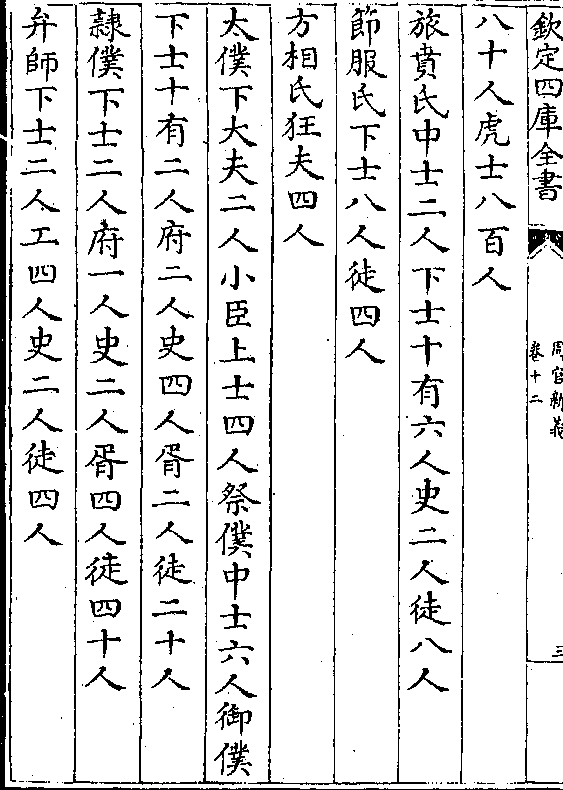 欽定四庫全書
周官新義
卷十二
三
八十人虎士八百人
旅賁氏中士二人下士十有六人史二人徒八人
節服氏下士八人徒四人
方相氏狂夫四人
太僕下大夫二人小臣上士四人祭僕中士六人御僕
下士十有二人府二人史四人胥二人徒二十人
隸僕下士二人府一人史二人胥四人徒四十人
弁師下士二人工四人史二人徒四人